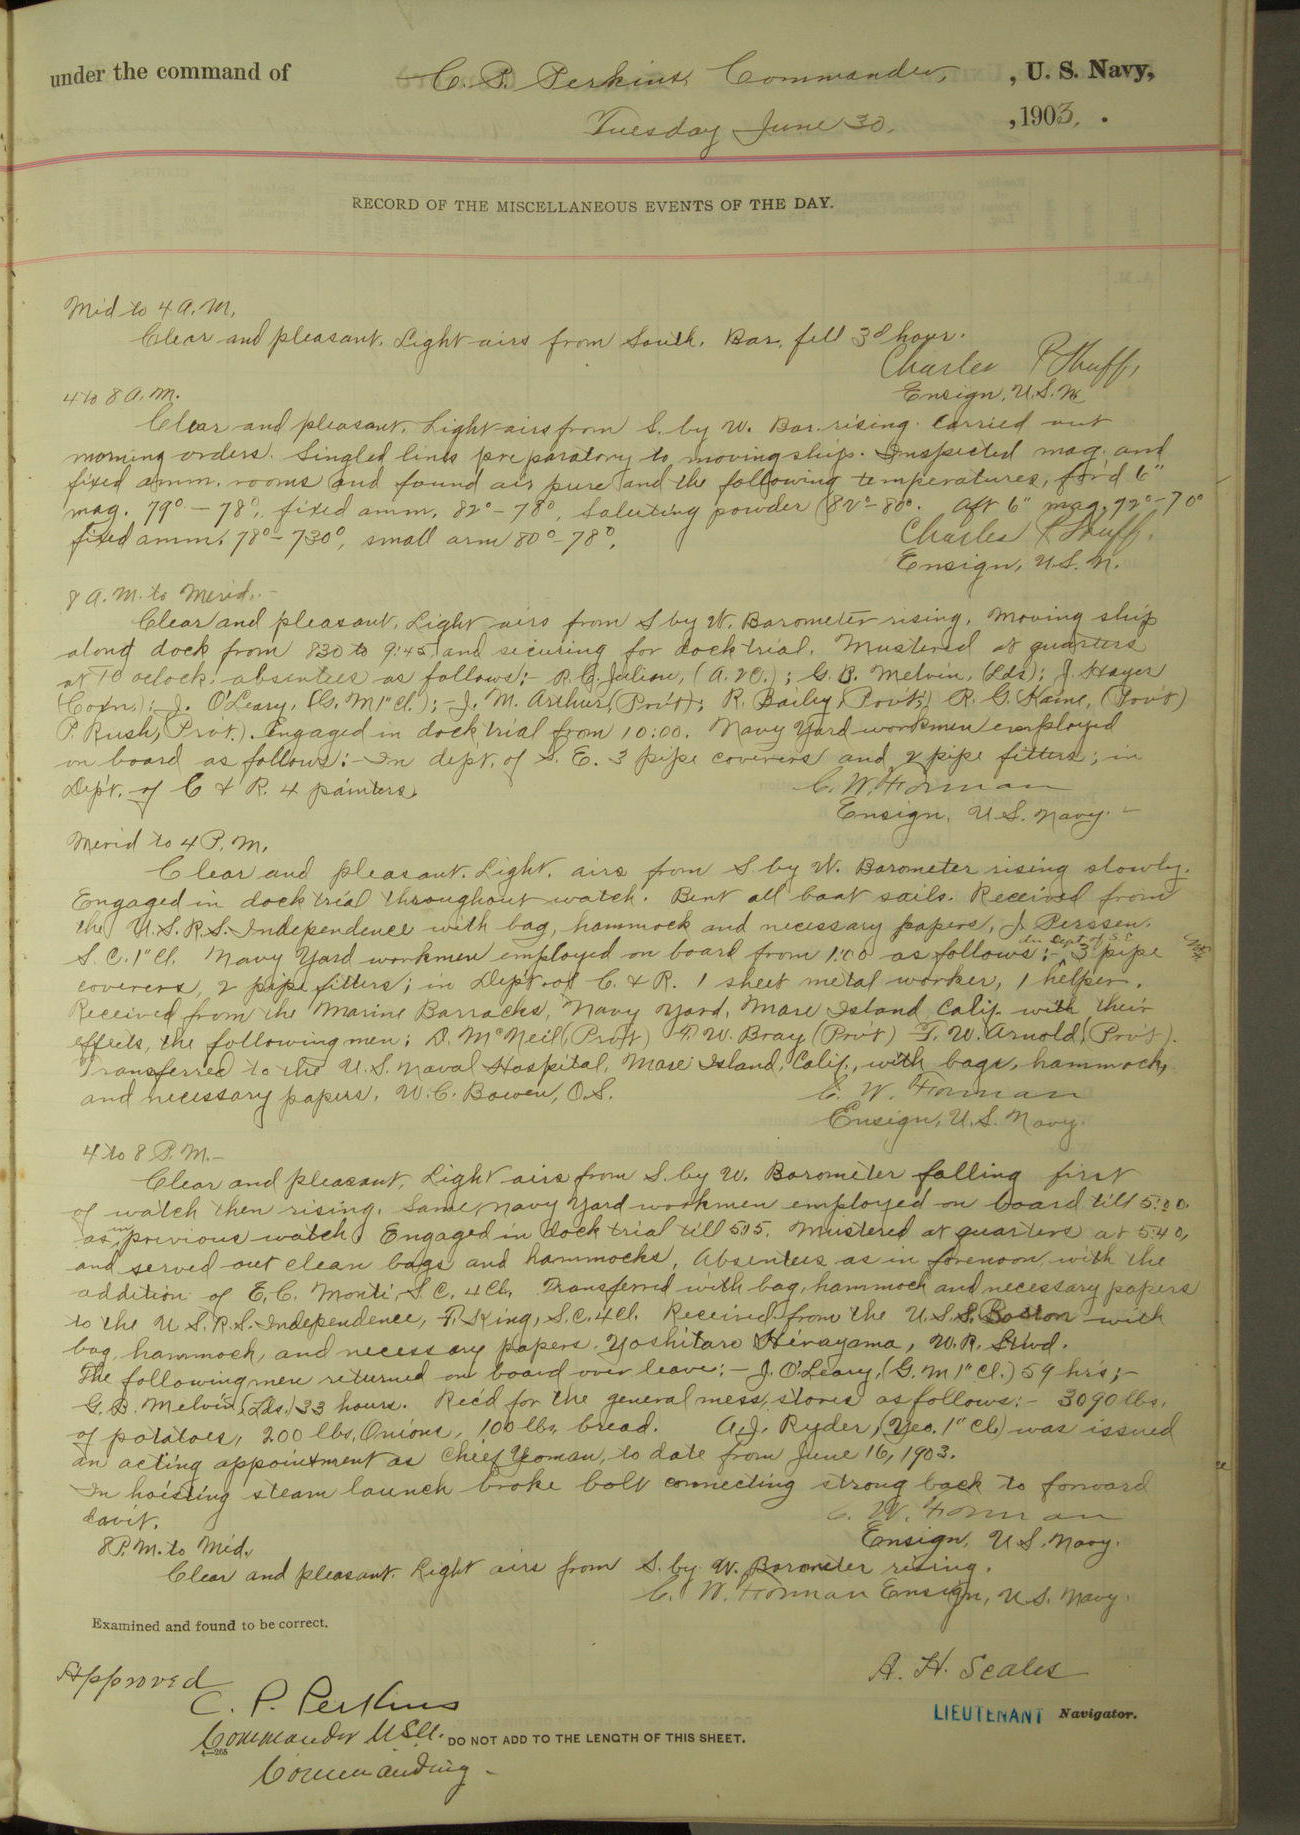 under the command of C. P. Perkins, Commander, , U. S. Navy,
Tuesday June 30. , 1903.
RECORD OF THE MISCELLANEOUS EVENTS OF THE DAY.
Mid to 4 A.M.
Clear and pleasant. Light airs from South. Bar. fell 3d hour.
Charles P. Huff,
Ensign, U.S.N.
4 to 8 A.M.
Clear and pleasant. Light airs from S. by W. Bar. rising. Carried out
morning orders. Singled lines preparatory to moving ship. Inspected mag. and
fixed amm. rooms and found air pure and the following temperatures, for'd 6"
mag. 79° – 78°, fixed amm. 82° – 78°, Saluting powder 82° – 80°. Aft 6" mag. 72° – 70°
fixed amm. 78° – 730°, small arm 80° – 78°.
Charles P. Huff.
Ensign, U.S.N.
8 A.M. to Merid. –
Clear and pleasant. Light airs from S by W. Barometer rising. Moving ship
along dock from 830 to 9:45, and securing for dock trial. Mustered at quarters
at 10 oclock, absentees as follows: – R. C. Julian, ( ); G. B. Melvin, (Lds); J. Hayer
(Coxn.); J. O'Leary, (G. M 1" Cl.); – J. M. Arthur, (Pri't); R. Bailey, (Pri't;) R. G. Kaine, (Priv't)
P. Rush, (Priv't.). Engaged in dock trial from 10:00. Navy Yard workmen employed
on board as follows: – In dept. of S. E. 3 pipe coverers and 2 pipe fitters; in
Dep't. of C & R. 4 painters.
C. W. Forman
Ensign, U.S. Navy. –
Merid to 4 P.M.
Clear and pleasant. Light. airs from S by W. Barometer rising slowly.
Engaged in dock trial throughout watch. Bent all boat sails. Received from
the U.S.R.S. Independence with bag, hammock and necessary papers, J. Perssen.
S.C. 1" Cl. Navy Yard workmen employed on board from 1:00 as follows: – in Dept of S.E. 3 pipe
coverers, 2 pipe fitters; in Dep't of C. & R. 1 sheet metal worker, 1 helper.
Received from the Marine Barracks, Navy Yard, Mare Island Calif. with their
effects, the following men; D. McNeil, (Priv't) F. W. Bray (Priv't) F. W. Arnold, (Priv't).
Transferred to the U.S. Naval Hospital, Mare Island, Calif., with bags, hammock,
and necessary papers. W. C. Bowen, O.S.
C. W. Forman
Ensign, U.S. Navy.
4 to 8 P.M. –
Clear and pleasant. Light airs from S. by W. Barometer falling first
of watch then rising. Same Navy Yard workmen employed on board till 5:00
as in previous watch. Engaged in dock trial till 5:15. Mustered at quarters at 5:40,
and served out clean bags and hammocks. Absentees as in forenoon with the
addition of E. C. Monti, S.C. 4 Cl. Transferred with bag, hammock and necessary papers
to the U.S.R.S. Independence, F. King, S.C. 4 Cl. Received from the U.S.S. Boston with
bag, hammock, and necessary papers. Yoshitaro Hirayama, W. R. Strwd.
The following men returned on board over leave: – J. O'Leary, (G. M 1" Cl.) 59 hrs; –
G. B. Melvin (Lds.) 33 hours. Rec'd for the general mess, stores as follows: – 3090 lbs.
of potatoes, 200 lbs. Onions, 100 lbs. bread. A. J. Ryder, (Yeo. 1" Cl.) was issued
an acting appointment as Chief Yeoman, to date from June 16, 1903.
In hoisting steam launch broke bolt connecting strong back to forward
davit.
C. W. Forman
Ensign, U.S. Navy.
8 P.M. to Mid.
Clear and pleasant. Light airs from S. by W. Barometer rising.
C. W. Forman Ensign, U.S. Navy.
Examined and found to be correct.
Approved
C. P. Perkins
Commander U.S.N.
Commanding –
A. H. Scales
LIEUTENANT Navigator.
DO NOT ADD TO THE LENGTH OF THIS SHEET.
4—265